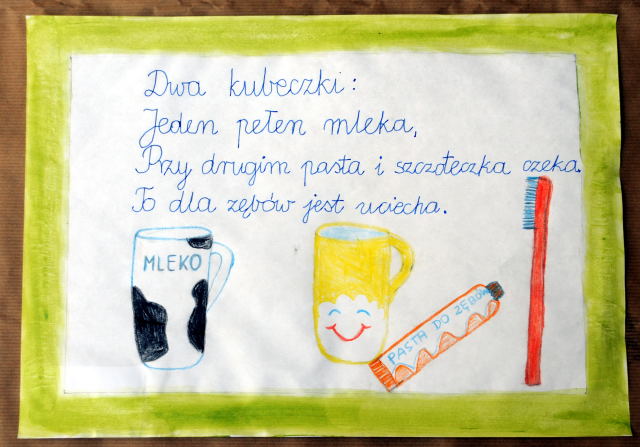 Dwa kubeczki:
Jeden pełen mleka,
Przy drugim pasta i szczoteczka czeka.
To dla zębów jest uciecha.
MLEKO
PASTA DO ZĘBÓW